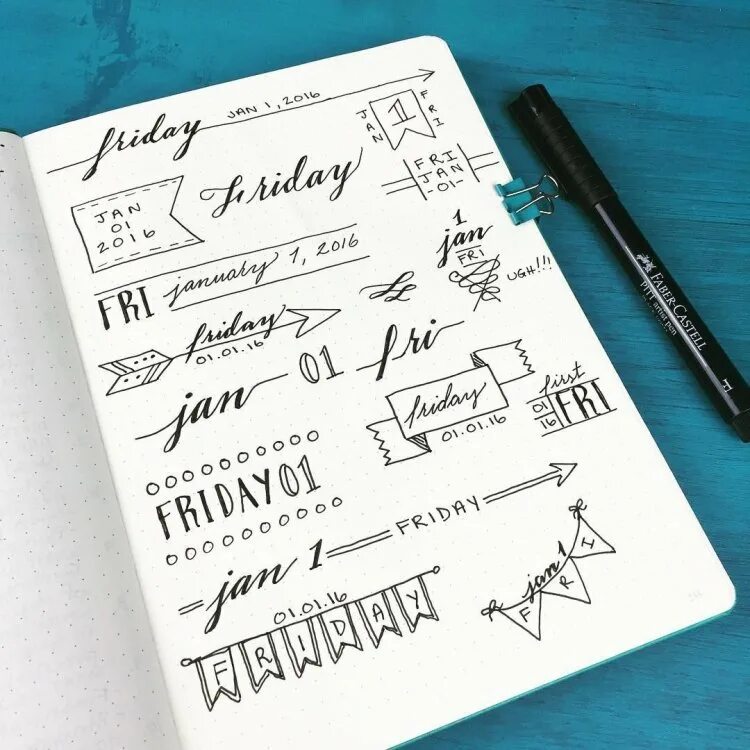 friday
JAN 1, 2016
JAN
1
FRI
JAN
01
2016
Friday
FRI
JAN
-01-
1
jan
FRI
UGH!!!
FRI january 1, 2016
friday
01.01.16
jan 01 fri
friday
01.01.16
first
01
16
FRI
FRIDAY 01
jan 1 FRIDAY
01.01.16
FRIDAY
jan 1
FRI
FABER-CASTELL
PITT artist pen
F